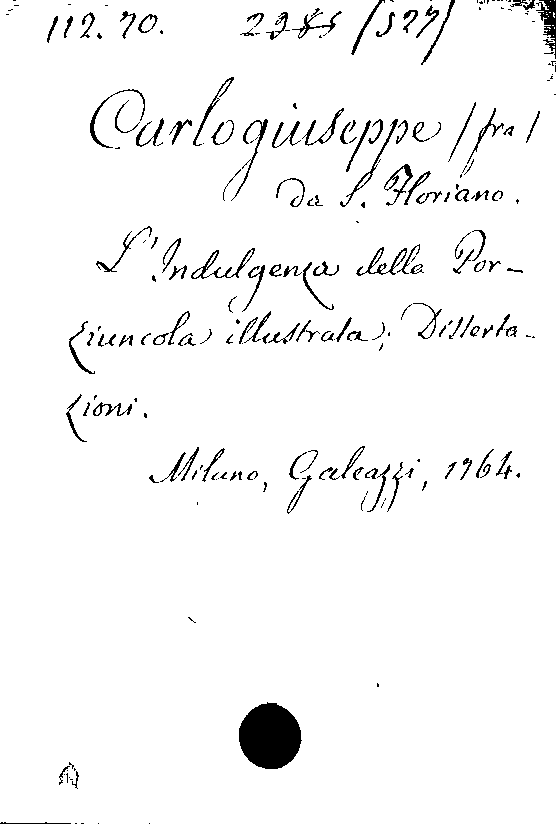 112. 70. 2985 (527)
Carlogiuseppe (fra)
da S. Floriano.
L'Indulgenza della Por-
ziuncola illustrata; Disserta-
zioni.
Milano, Galeazzi, 1764.